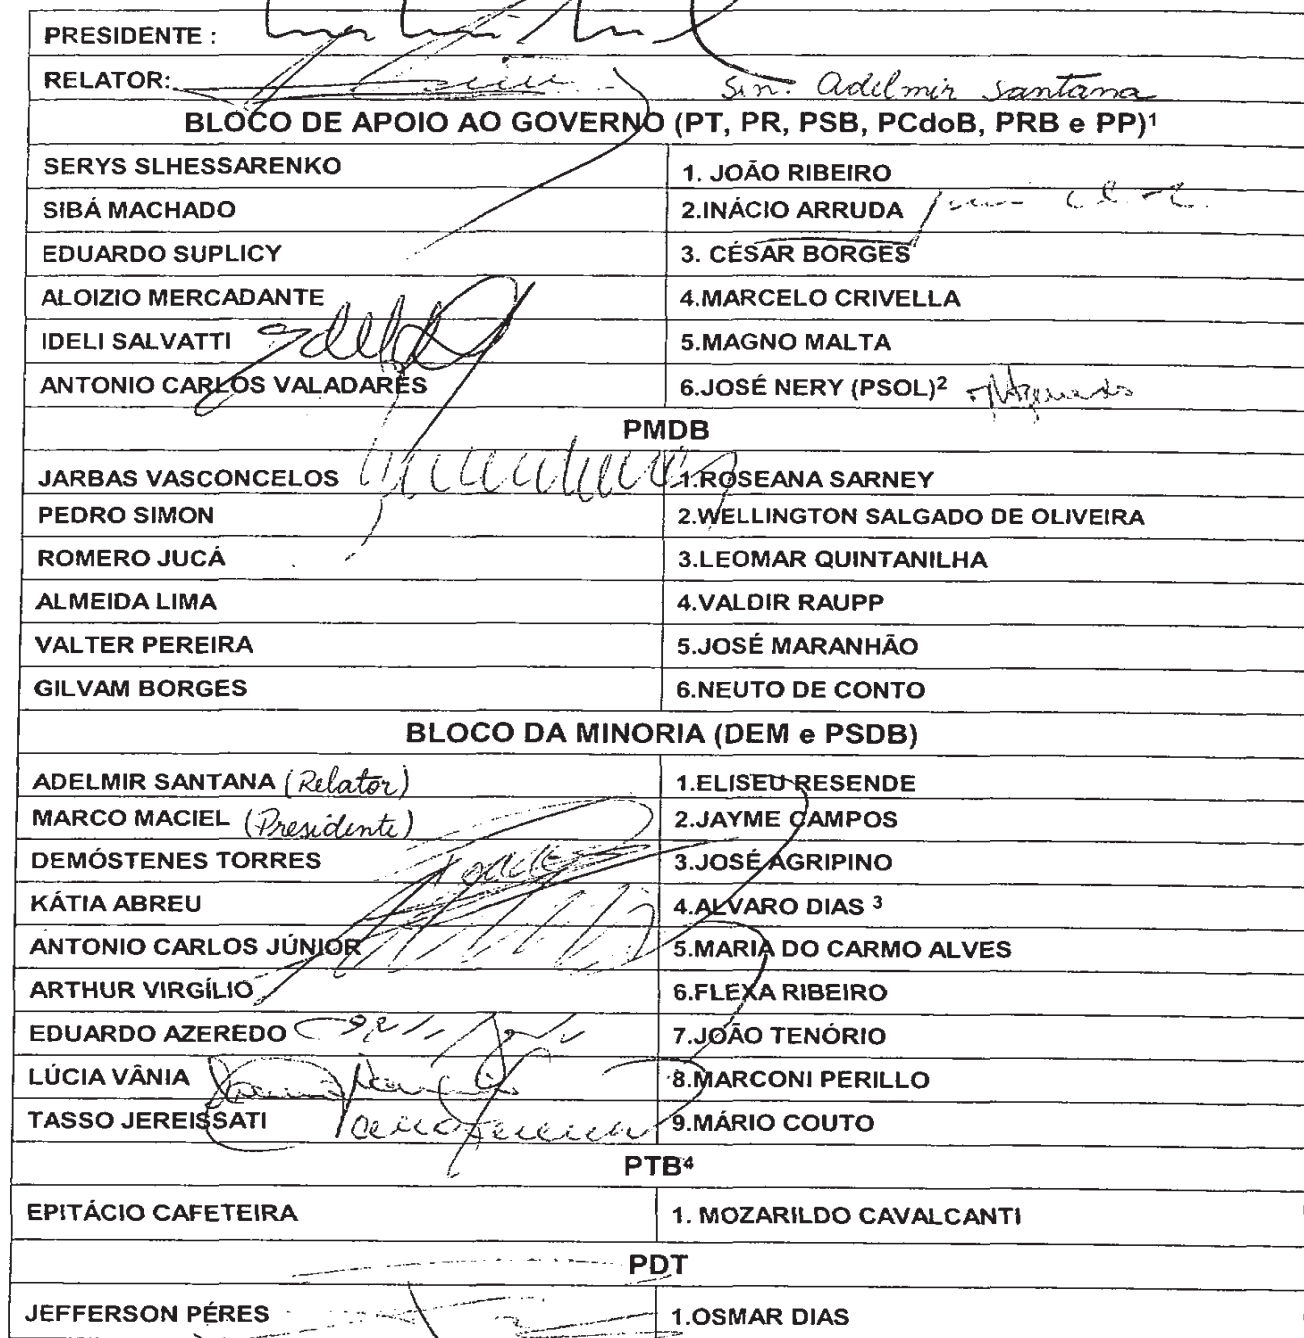 PRESIDENTE :
RELATOR: Sen. Adelmir Santana
BLOCO DE APOIO AO GOVERNO (PT, PR, PSB, PCdoB, PRB e PP)¹
SERYS SLHESSARENKO 1. JOÃO RIBEIRO
SIBÁ MACHADO 2.INÁCIO ARRUDA
EDUARDO SUPLICY 3. CÉSAR BORGES
ALOIZIO MERCADANTE 4.MARCELO CRIVELLA
IDELI SALVATTI 5.MAGNO MALTA
ANTONIO CARLOS VALADARES 6.JOSÉ NERY (PSOL)²
PMDB
JARBAS VASCONCELOS 1.ROSEANA SARNEY
PEDRO SIMON 2.WELLINGTON SALGADO DE OLIVEIRA
ROMERO JUCÁ 3.LEOMAR QUINTANILHA
ALMEIDA LIMA 4.VALDIR RAUPP
VALTER PEREIRA 5.JOSÉ MARANHÃO
GILVAM BORGES 6.NEUTO DE CONTO
BLOCO DA MINORIA (DEM e PSDB)
ADELMIR SANTANA (Relator) 1.ELISEU RESENDE
MARCO MACIEL (Presidente) 2.JAYME CAMPOS
DEMÓSTENES TORRES 3.JOSÉ AGRIPINO
KÁTIA ABREU 4.ALVARO DIAS ³
ANTONIO CARLOS JÚNIOR 5.MARIA DO CARMO ALVES
ARTHUR VIRGÍLIO 6.FLEXA RIBEIRO
EDUARDO AZEREDO 7.JOÃO TENÓRIO
LÚCIA VÂNIA 8.MARCONI PERILLO
TASSO JEREISSATI 9.MÁRIO COUTO
PTB⁴
EPITÁCIO CAFETEIRA 1. MOZARILDO CAVALCANTI
PDT
JEFFERSON PÉRES 1.OSMAR DIAS